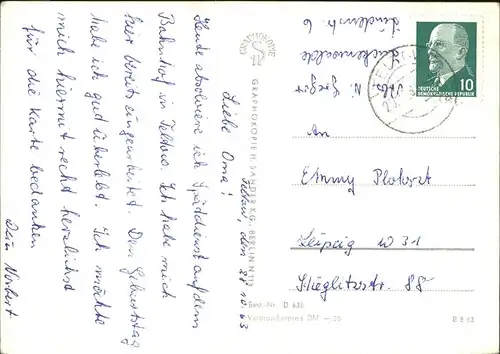 Teltow, den 28.10.63
Liebe Oma!
Heute absolviere ich Spätdienst auf dem
Bahnhof in Teltow. Ich habe mich
hier bereits eingearbeitet. Den Geburtstag
habe ich gut überlebt. Ich möchte
mich hiermit recht herzlichst
für die Karte bedanken
Dein Norbert
GRAPHOKOPIE
GRAPHOKOPIE H. SANDER KG. BERLIN N 113
Best.-Nr. D 636
Verbraucherpreis DM -,25
B 9 63
Abs. N. Gregor
Luckenwalde
Lindenstr. 6
DEUTSCHE
DEMOKRATISCHE REPUBLIK
10
An
Emmy
Leipzig W 31
Stieglitzstr. 88